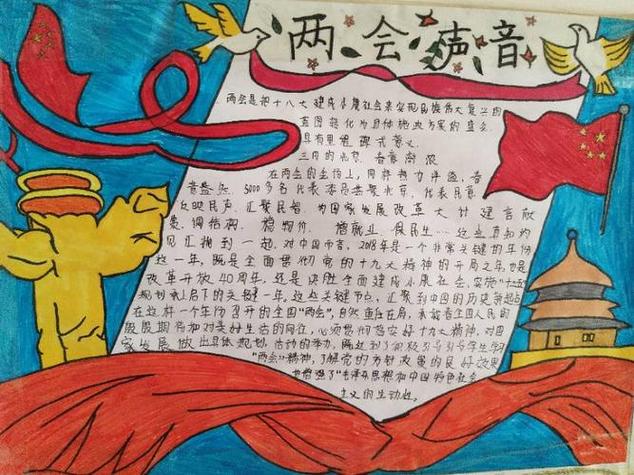 两会声音
两会是把十八大建成小康社会来实现民族伟大复兴的
蓝图转化为具体施政方案的盛会
具有里程碑式意义
三月的北京 春意尚浓
在两会的会场上,同样热力洋溢,春
意盎然 5000多名代表委员共聚北京,代表民意
反映民声,汇聚民智,为国家发展改革大计建言献
策,调结构、稳物价、增就业、保民生……这些真知灼
见汇拥到一起,对中国而言,2018年是一个非常关键的年份
这一年,既是全面贯彻党的十九大精神的开局之年,也是
改革开放40周年,还是决胜全面建成小康社会,实施"十三五"
规划承启下的关键一年。这些关键节点,汇聚到中国的历史新起点
在这样一个年份召开的全国"两会",自然重任在肩,承载着全国人民的
殷殷期待和对美好生活的向往,必须贯彻落实好十九大精神,对国
家发展做出具体规划 活动的举办,既达到了积极引导引导学生学习
"两会"精神,了解党的方针政策的良好效果
也增强了"毛泽东思想和中国特色社会
主义的生动性。